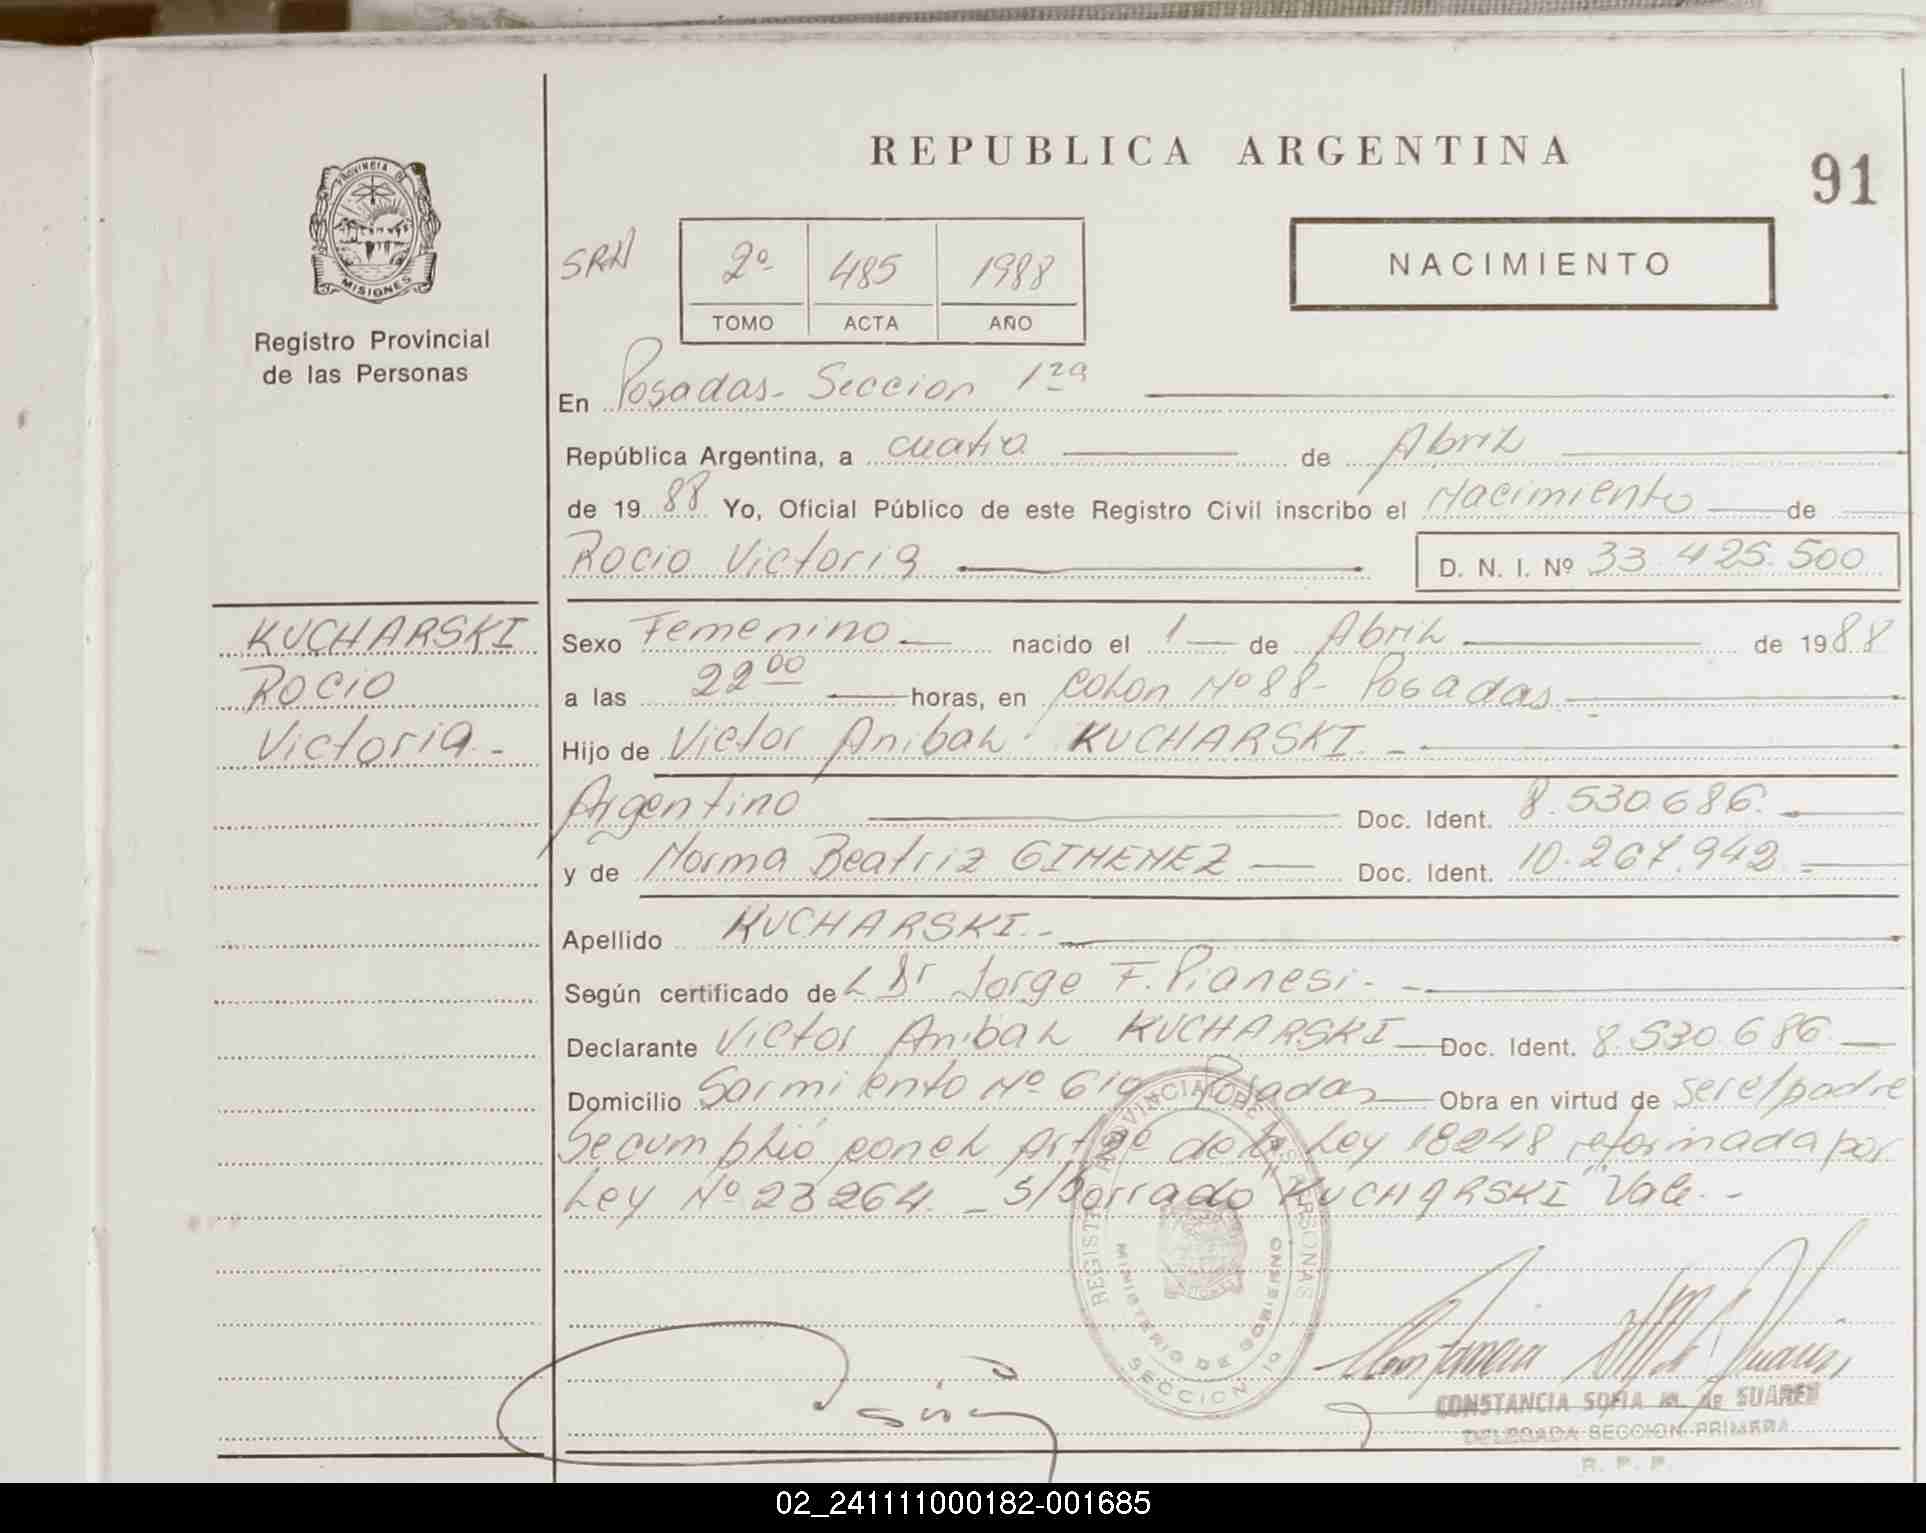 REPUBLICA ARGENTINA
91
PROVINCIA DE
MISIONES
Registro Provincial
de las Personas
SRN
2º 485 1988
TOMO ACTA AÑO
NACIMIENTO
En Posadas - Seccion 1ra
República Argentina, a cuatro de Abril
de 1988 Yo, Oficial Público de este Registro Civil inscribo el Nacimiento de
Rocio Victoria D. N. I. Nº 33.425.500
KUCHARSKI
Rocio
Victoria.-
Sexo Femenino nacido el 1 de Abril de 1988
a las 22 00 horas, en Colon Nº 88 - Posadas
Hijo de Victor Anibal KUCHARSKI.-
Argentino Doc. Ident. 8.530.686.
y de Norma Beatriz GIMENEZ Doc. Ident. 10.267.942.
Apellido KUCHARSKI.-
Según certificado del Dr Jorge F. Pianesi.-
Declarante Victor Anibal KUCHARSKI Doc. Ident. 8.530.686.
Domicilio Sarmiento Nº Posadas Obra en virtud de ser el padre
Se cumplió con el Art 2º de la Ley 18248 reformada por
Ley Nº 23264. - S/borrado KUCHARSKI Vale.-
REGISTRO PROVINCIAL DE LAS PERSONAS
MINISTERIO DE GOBIERNO
SECCION 1a
CONSTANCIA SOFIA M. de SUAREZ
DELEGADA SECCION PRIMERA
R. P. P.
02_241111000182-001685